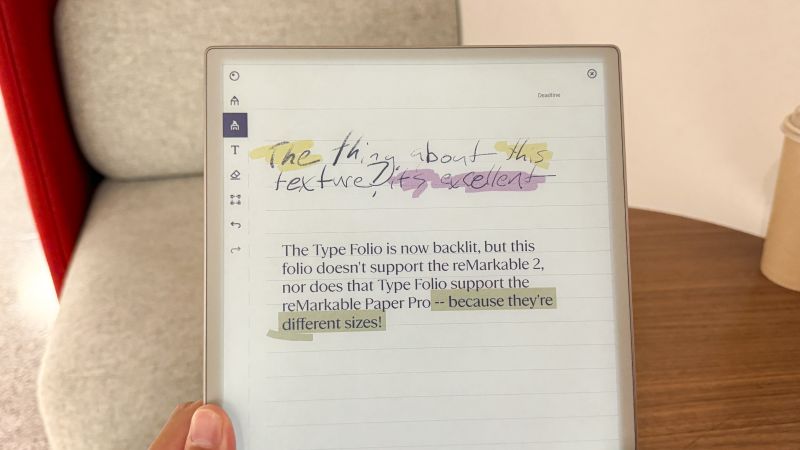 Deadline
The thing about this
texture? it's excellent
The Type Folio is now backlit, but this
folio doesn't support the reMarkable 2,
nor does that Type Folio support the
reMarkable Paper Pro -- because they're
different sizes!
T